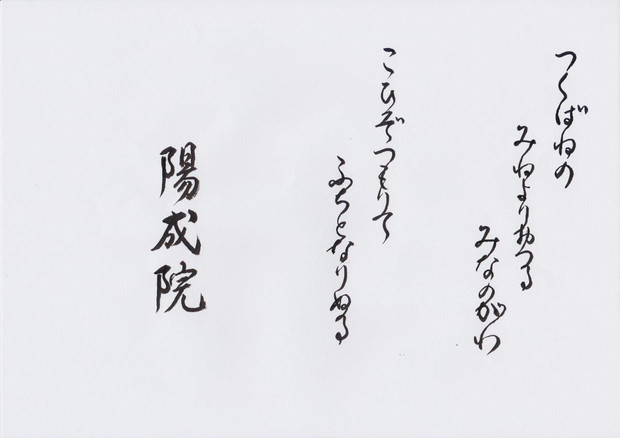 つくばねの
みねよりおつる
みなのがわ
こひぞつもりて
ふちとなりぬる
陽成院